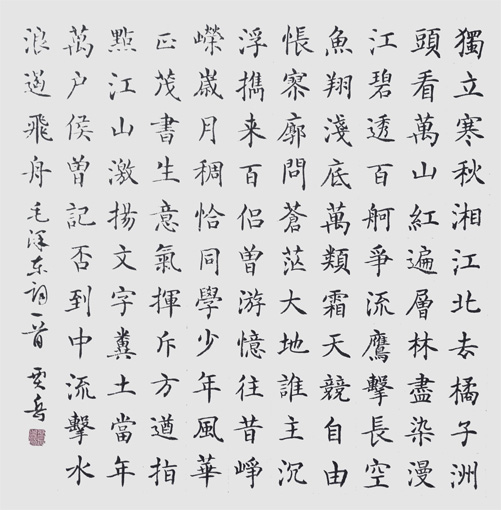 獨立寒秋湘江北去橘子洲
頭看萬山紅遍層林盡染漫
江碧透百舸爭流鷹擊長空
魚翔淺底萬類霜天競自由
悵寥廓問蒼茫大地誰主沉
浮攜来百侣曾游憶往昔崢
嶸歲月稠恰同學少年風華
正茂書生意氣揮斥方遒指
點江山激揚文字糞土當年
萬户侯曾記否到中流擊水
浪遏飛舟毛泽东詞一首